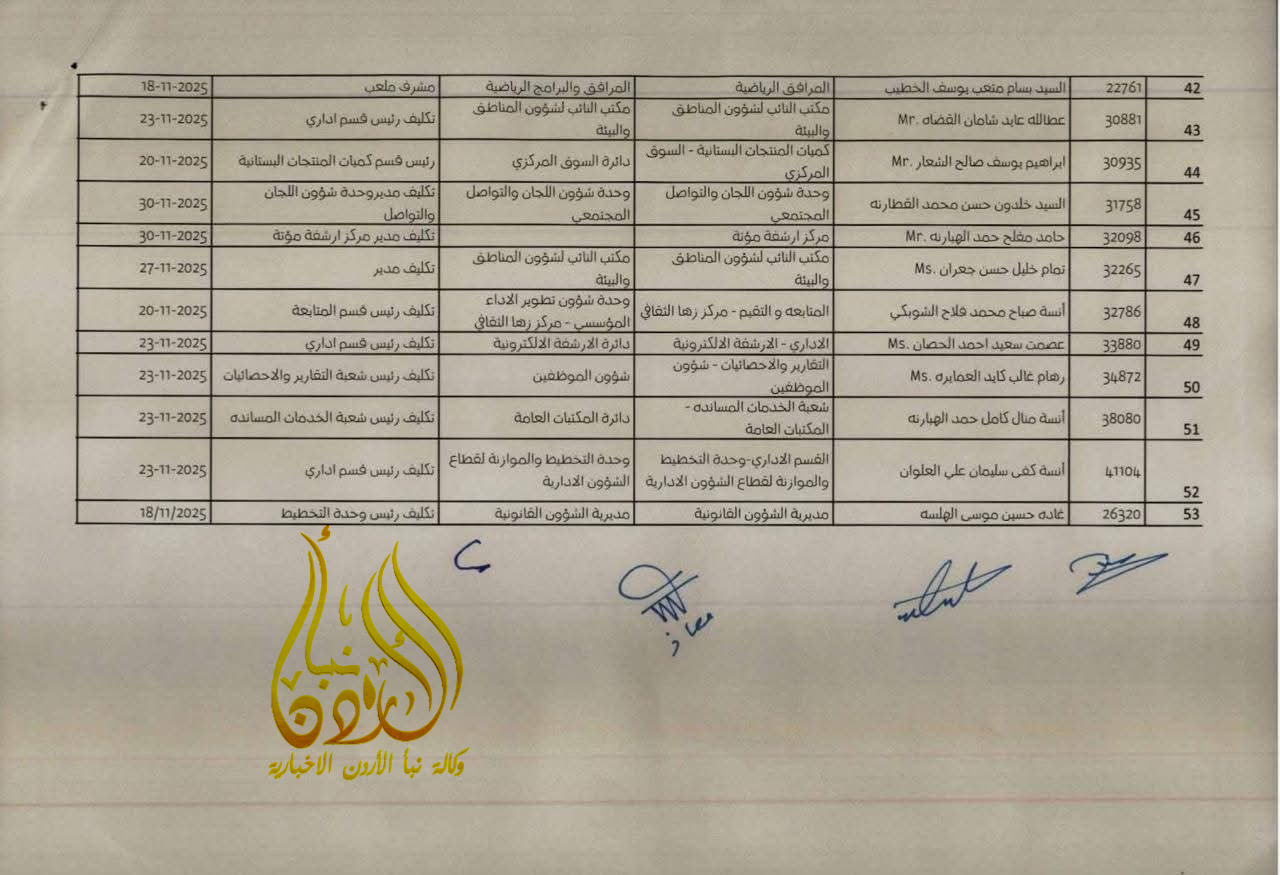 42 22761 السيد بسام متعب يوسف الخطيب المرافق الرياضية المرافق والبرامج الرياضية مشرف ملعب 18-11-2025
43 30881 عطالله عايد شامان القضاه .Mr مكتب النائب لشؤون المناطق والبيئة مكتب النائب لشؤون المناطق والبيئة تكليف رئيس قسم اداري 23-11-2025
44 30935 ابراهيم يوسف صالح الشعار .Mr كميات المنتجات البستانية - السوق المركزي دائرة السوق المركزي رئيس قسم كميات المنتجات البستانية 20-11-2025
45 31758 السيد خلدون حسن محمد القطارنه وحدة شؤون اللجان والتواصل المجتمعي وحدة شؤون اللجان والتواصل المجتمعي تكليف مديروحدة شؤون اللجان والتواصل 30-11-2025
46 32098 حامد مفلح حمد الهبارنه .Mr مركز ارشفة مؤتة تكليف مدير مركز ارشفة مؤتة 30-11-2025
47 32265 تمام خليل حسن جعران .Ms مكتب النائب لشؤون المناطق والبيئة مكتب النائب لشؤون المناطق والبيئة تكليف مدير 27-11-2025
48 32786 أنسة صباح محمد فلاح الشوبكي المتابعه و التقيم - مركز زها الثقافي وحدة شؤون تطوير الاداء المؤسسي - مركز زها الثقافي تكليف رئيس قسم المتابعة 20-11-2025
49 33880 عصمت سعيد احمد الحصان .Ms الاداري - الارشفة الالكترونية دائرة الارشفة الالكترونية تكليف رئيس قسم اداري 23-11-2025
50 34872 رهام غالب كايد العمايره .Ms التقارير والاحصائيات - شؤون الموظفين شؤون الموظفين تكليف رئيس شعبة التقارير والاحصائيات 23-11-2025
51 38080 أنسة منال كامل حمد الهبارنه شعبة الخدمات المسانده - المكتبات العامة دائرة المكتبات العامة تكليف رئيس شعبة الخدمات المسانده 23-11-2025
52 41104 أنسة كفى سليمان علي العلوان القسم الاداري-وحدة التخطيط والموازنة لقطاع الشؤون الادارية وحدة التخطيط والموازنة لقطاع الشؤون الادارية تكليف رئيس قسم اداري 23-11-2025
53 26320 غاده حسين موسى الهلسه مديرية الشؤون القانونية مديرية الشؤون القانونية تكليف رئيس وحدة التخطيط 18/11/2025
نبأ الأردن
وكالة نبأ الأردن الاخبارية